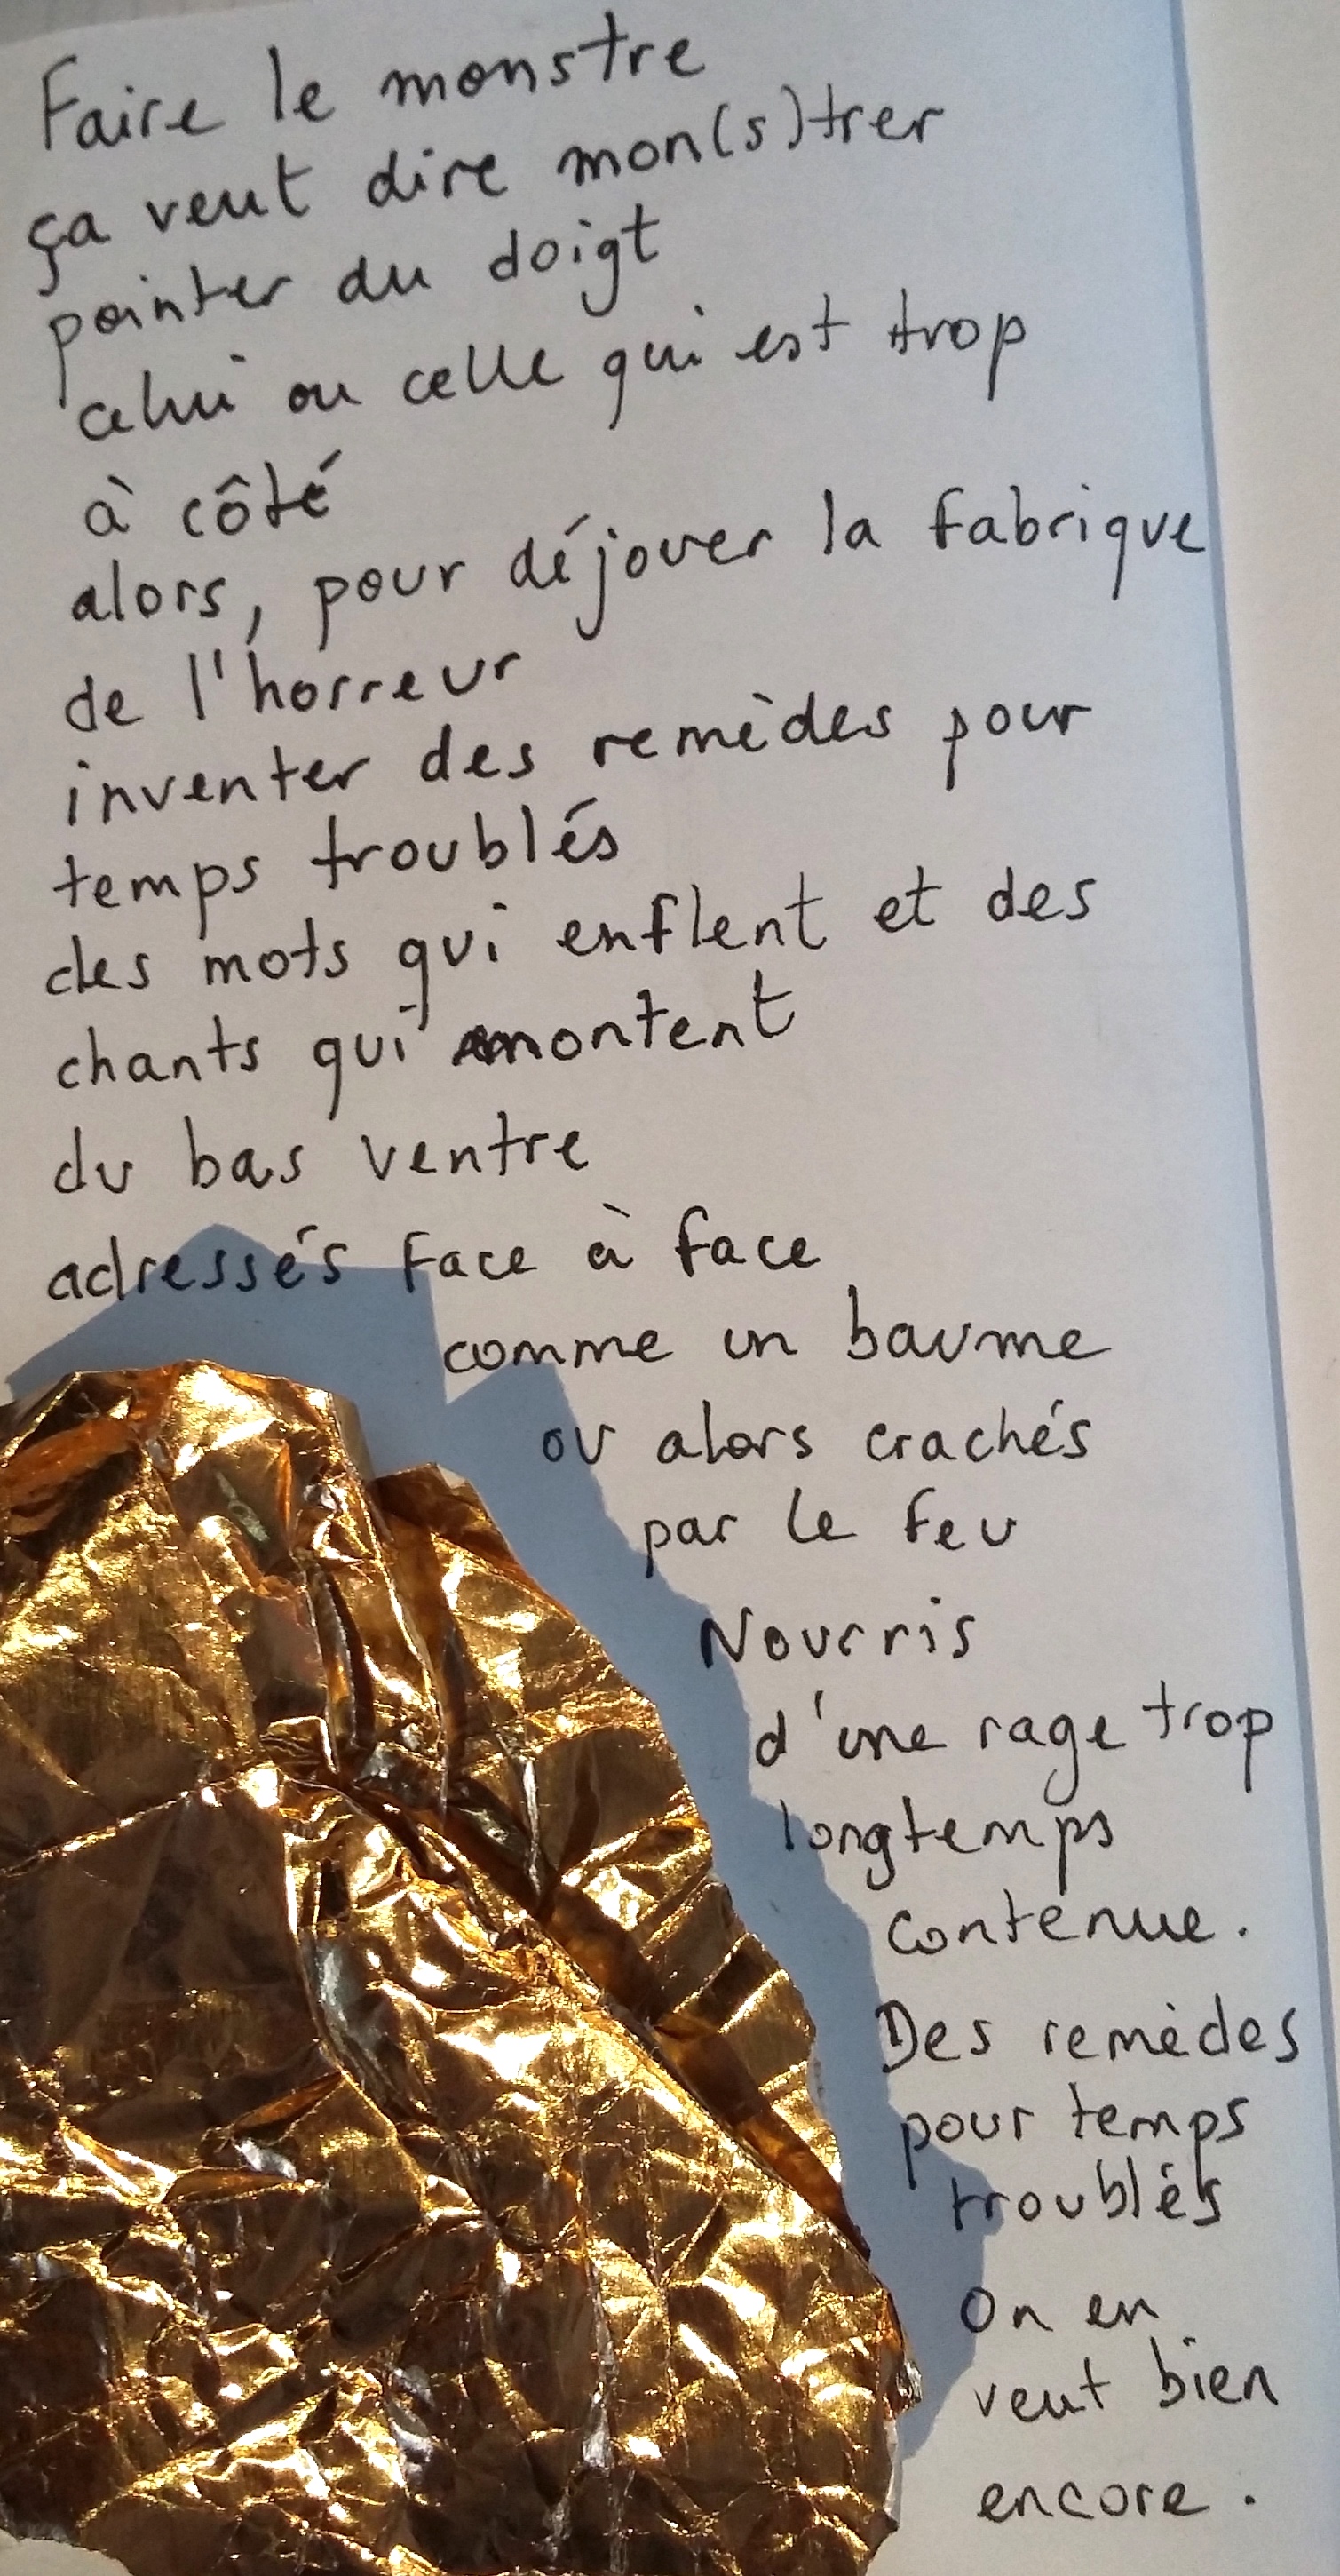 Faire le monstre
ça veut dire mon(s)trer
pointer du doigt
celui ou celle qui est trop
à côté
alors, pour déjouer la fabrique
de l'horreur
inventer des remèdes pour
temps troublés
des mots qui enflent et des
chants qui montent
du bas ventre
adressés face à face
comme un baume
ou alors crachés
par le feu
Nourris
d'une rage trop
longtemps
contenue.
Des remèdes
pour temps
troublés
On en
veut bien
encore.